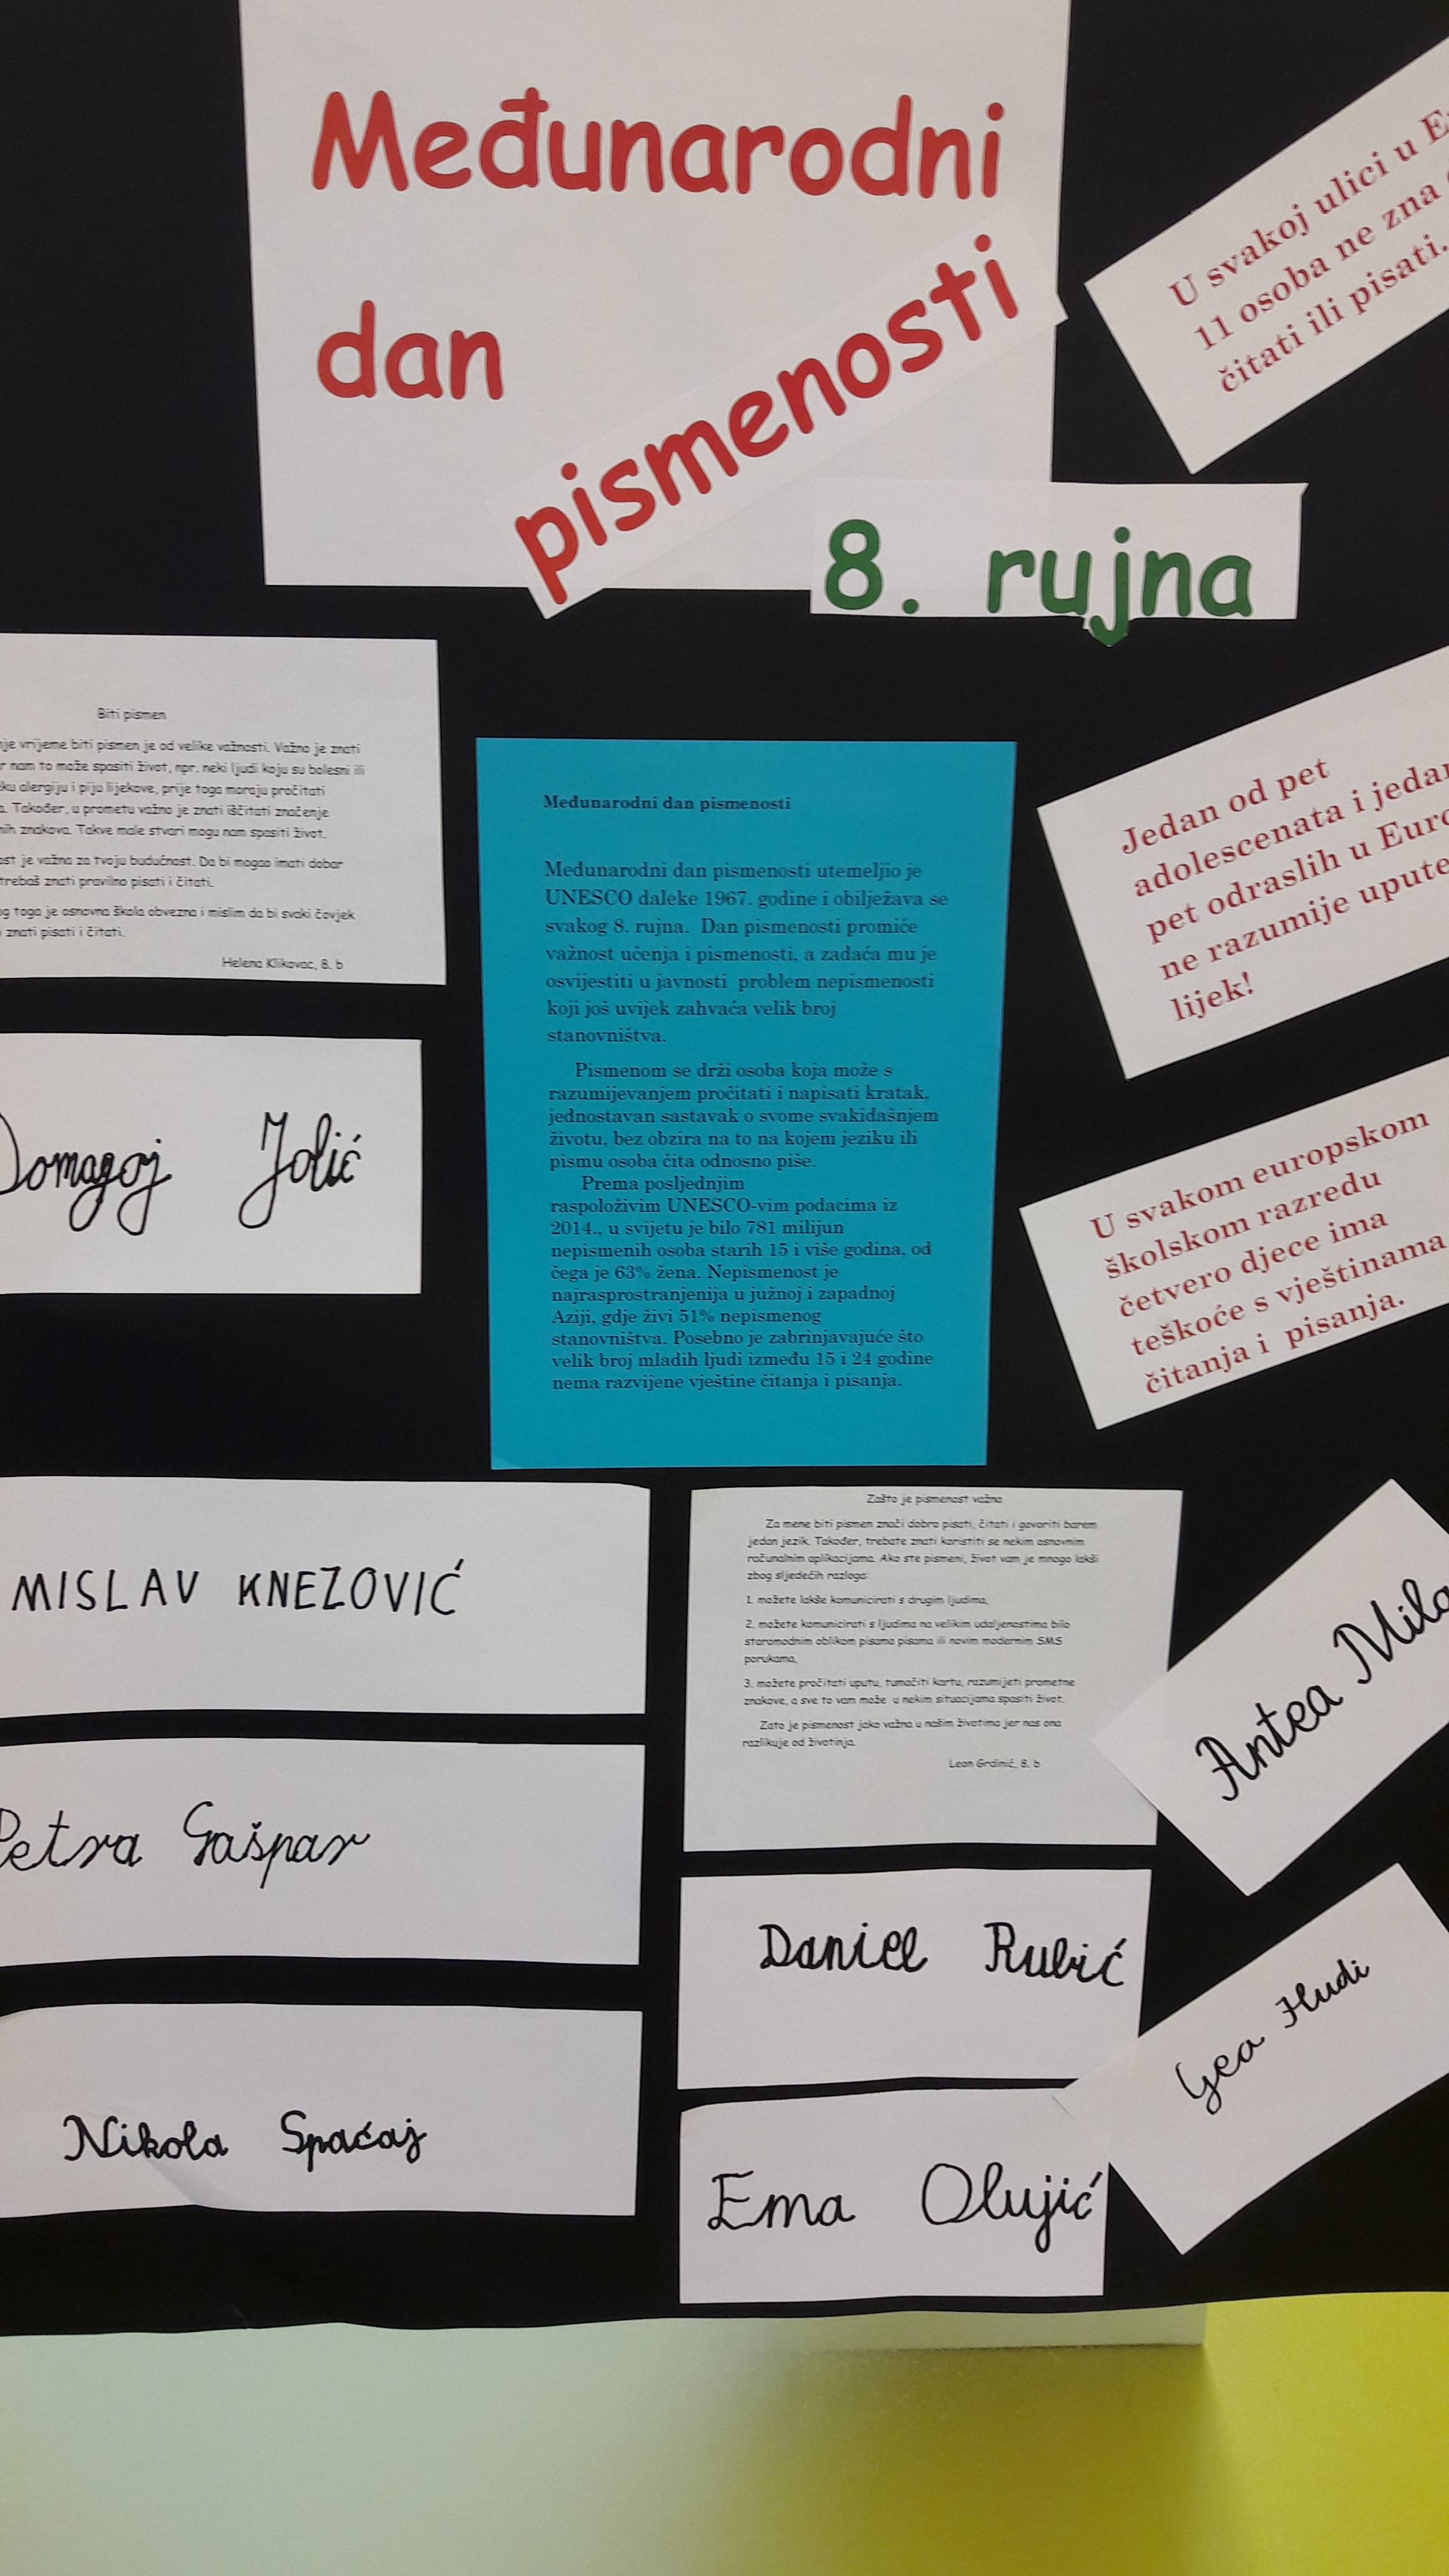 Međunarodni
dan
pismenosti
8. rujna
U svakoj ulici u
11 osoba ne zna
čitati ili pisati.
Biti pismen
vrijeme biti pismen je od velike važnosti. Važno je znati
nam to može spasiti život, npr. neki ljudi koju su bolesni ili
alergiju i piju lijekove, prije toga moraju pročitati
Također, u prometu važno je znati iščitati značenje
znakova. Takve male stvari mogu nam spasiti život.
je važna za tvoju budućnost. Da bi mogao imati dobar
trebaš znati pravilno pisati i čitati.
toga je osnovna škola obvezna i mislim da bi svaki čovjek
znati pisati i čitati.
Helena Klikovac, 8. b
Međunarodni dan pismenosti
Međunarodni dan pismenosti utemeljio je
UNESCO daleke 1967. godine i obilježava se
svakog 8. rujna. Dan pismenosti promiče
važnost učenja i pismenosti, a zadaća mu je
osvijestiti u javnosti problem nepismenosti
koji još uvijek zahvaća velik broj
stanovništva.
Pismenom se drži osoba koja može s
razumijevanjem pročitati i napisati kratak,
jednostavan sastavak o svome svakidašnjem
životu, bez obzira na to na kojem jeziku ili
pismu osoba čita odnosno piše.
Prema posljednjim
raspoloživim UNESCO-vim podacima iz
2014., u svijetu je bilo 781 milijun
nepismenih osoba starih 15 i više godina, od
čega je 63% žena. Nepismenost je
najrasprostranjenija u južnoj i zapadnoj
Aziji, gdje živi 51% nepismenog
stanovništva. Posebno je zabrinjavajuće što
velik broj mladih ljudi između 15 i 24 godine
nema razvijene vještine čitanja i pisanja.
Jedan od pet
adolescenata i jedan
pet odraslih u
ne razumije upute
lijek!
U svakom europskom
školskom razredu
četvero djece ima
teškoće s vještinama
čitanja i pisanja.
Domagoj Jolić
MISLAV KNEZOVIĆ
Petra Gašpar
Nikola Spaćaj
Zašto je pismenost važna
Za mene biti pismen znači dobro pisati, čitati i govoriti barem
jedan jezik. Također, trebate znati koristiti se nekim osnovnim
računalnim aplikacijama. Ako ste pismeni, život vam je mnogo lakši
zbog sljedećih razloga:
1. možete lakše komunicirati s drugim ljudima,
2. možete komunicirati s ljudima na velikim udaljenostima bilo
staromodnim oblikom pisama pisama ili novim modernim SMS
porukama,
3. možete pročitati uputu, tumačiti kartu, razumijeti prometne
znakove, a sve to vam može u nekim situacijama spasiti život.
Zato je pismenost jako važna u našim životima jer nas ona
razlikuje od životinja.
Leon Grdinić, 8. b
Antea
Daniel Rubić
Gea Hudi
Ema Olujić